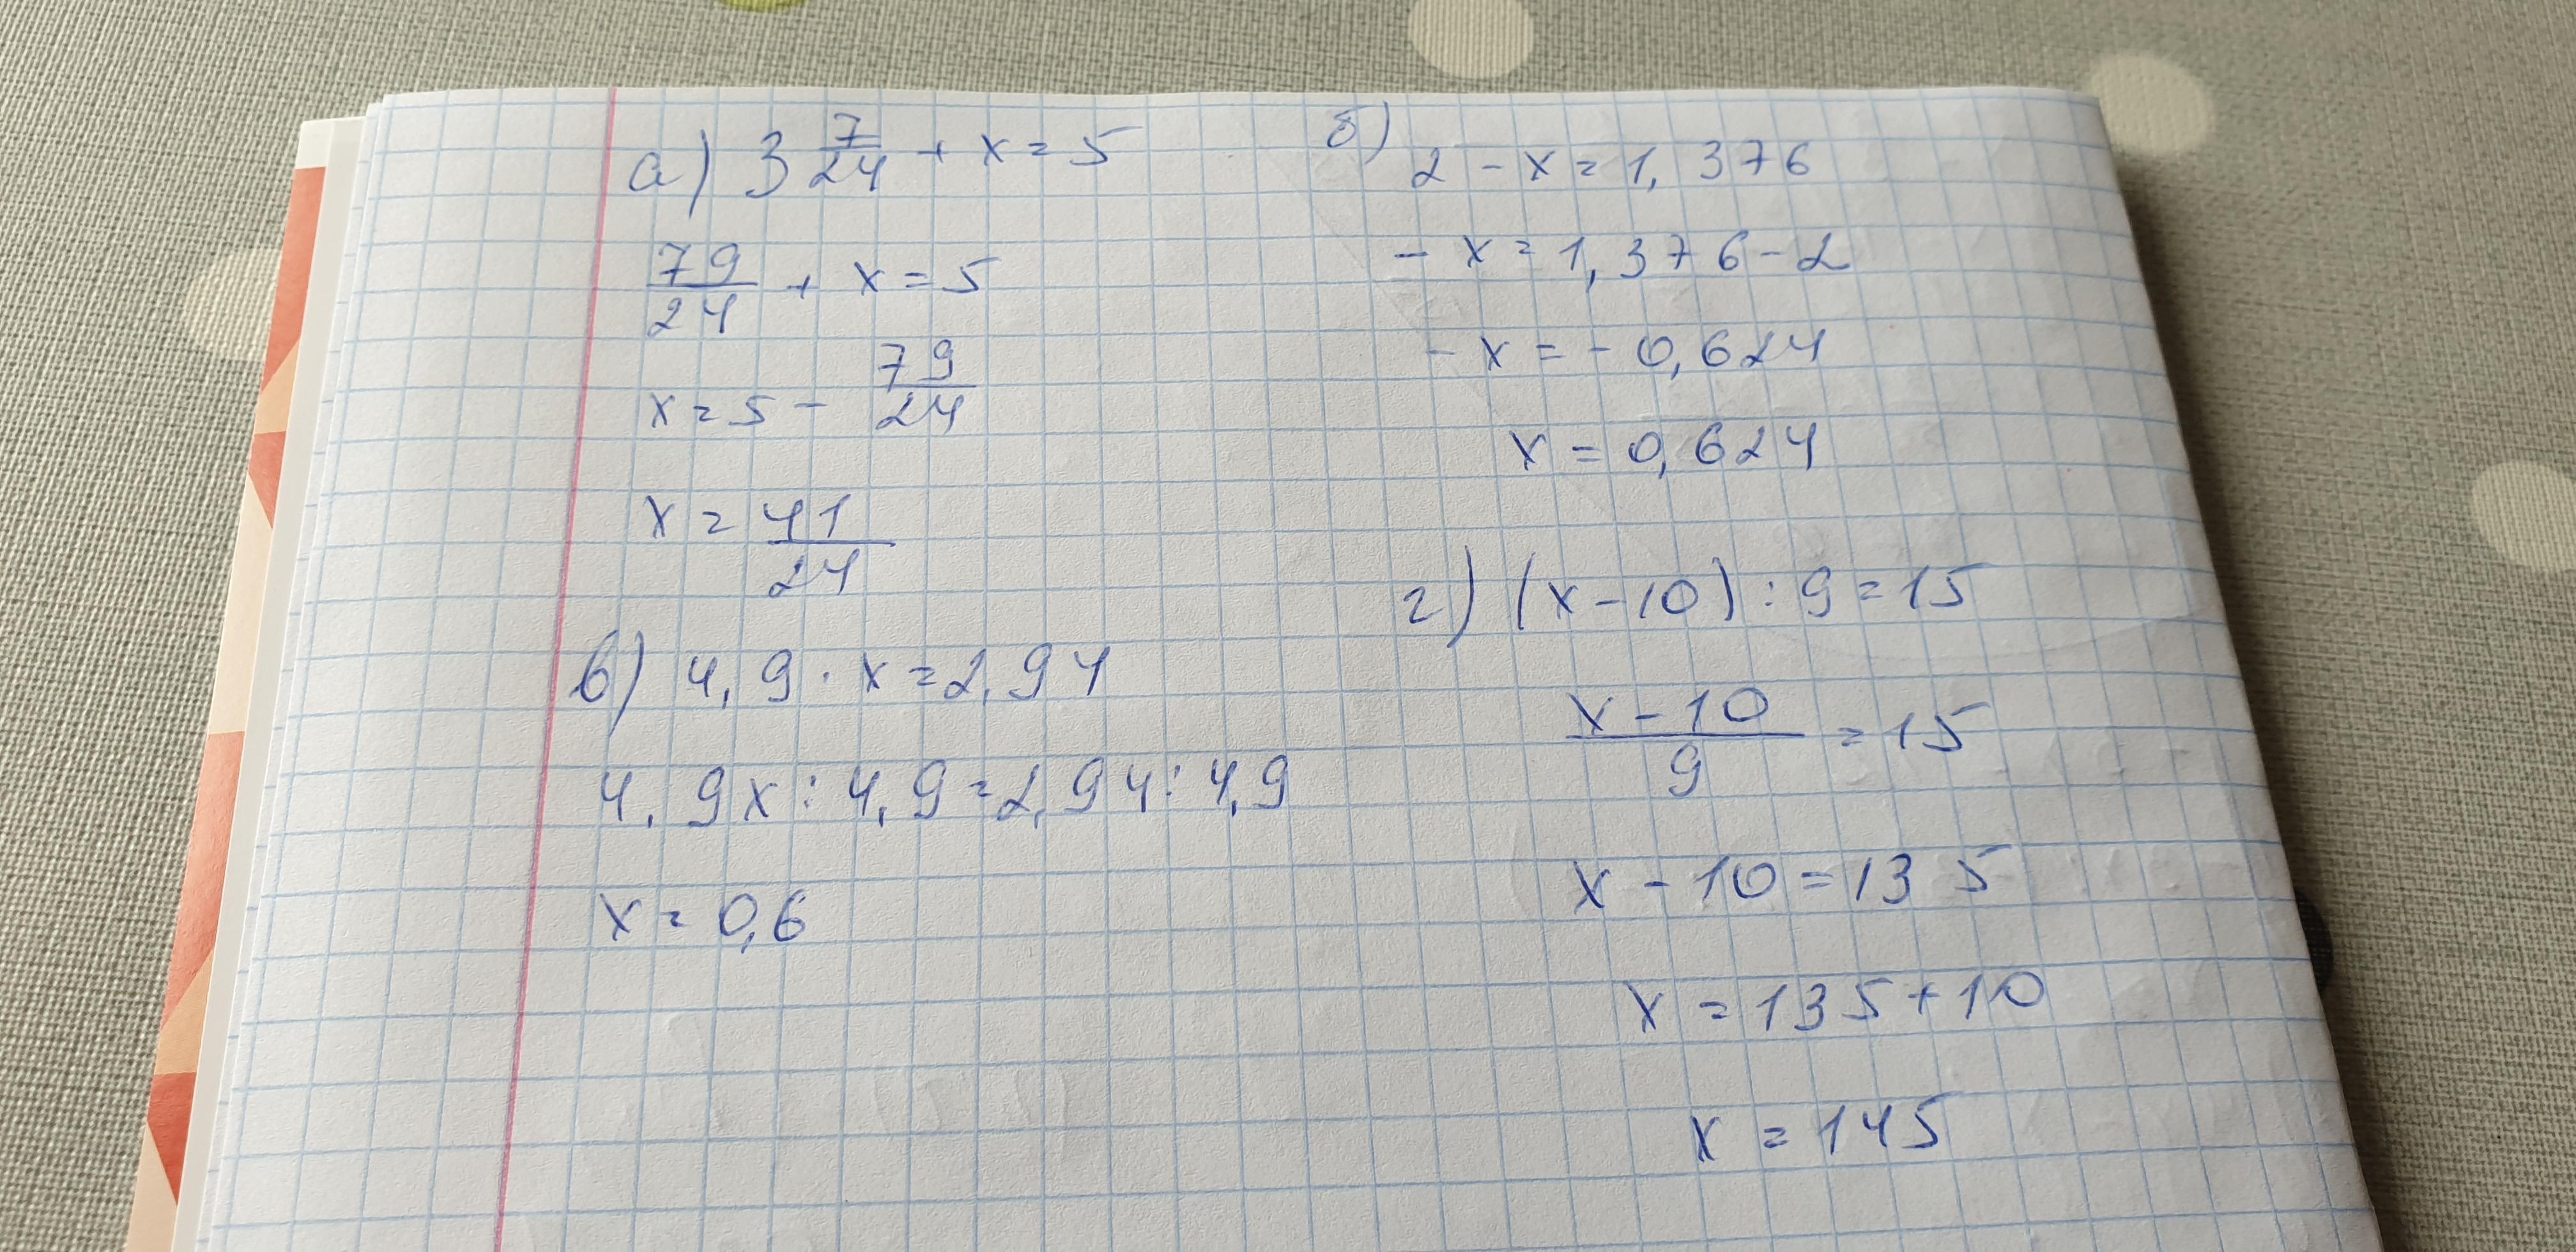 а) 3 7/24 + x = 5
79/24 + x = 5
x = 5 - 79/24
x = 41/24
б) 2 - x = 1,376
- x = 1,376 - 2
- x = - 0,624
x = 0,624
в) 4,9 · x = 2,94
4,9x : 4,9 = 2,94 : 4,9
x = 0,6
г) (x - 10) : 9 = 15
x - 10 / 9 = 15
x - 10 = 135
x = 135 + 10
x = 145